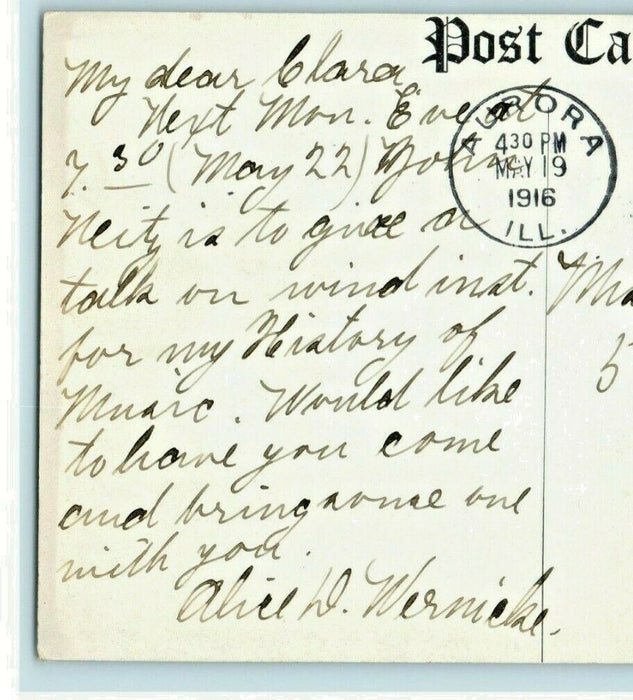 Post Ca
AURORA
4 30 PM
MAY 19
1916
ILL.
My dear Clara,
Next Mon. Eve at
7.30 (May 22)
Neitz is to give a
talk on wind inst.
for my History of
Music. Would like
to have you come
and bring some one
with you.
Alice D. Wernicke.